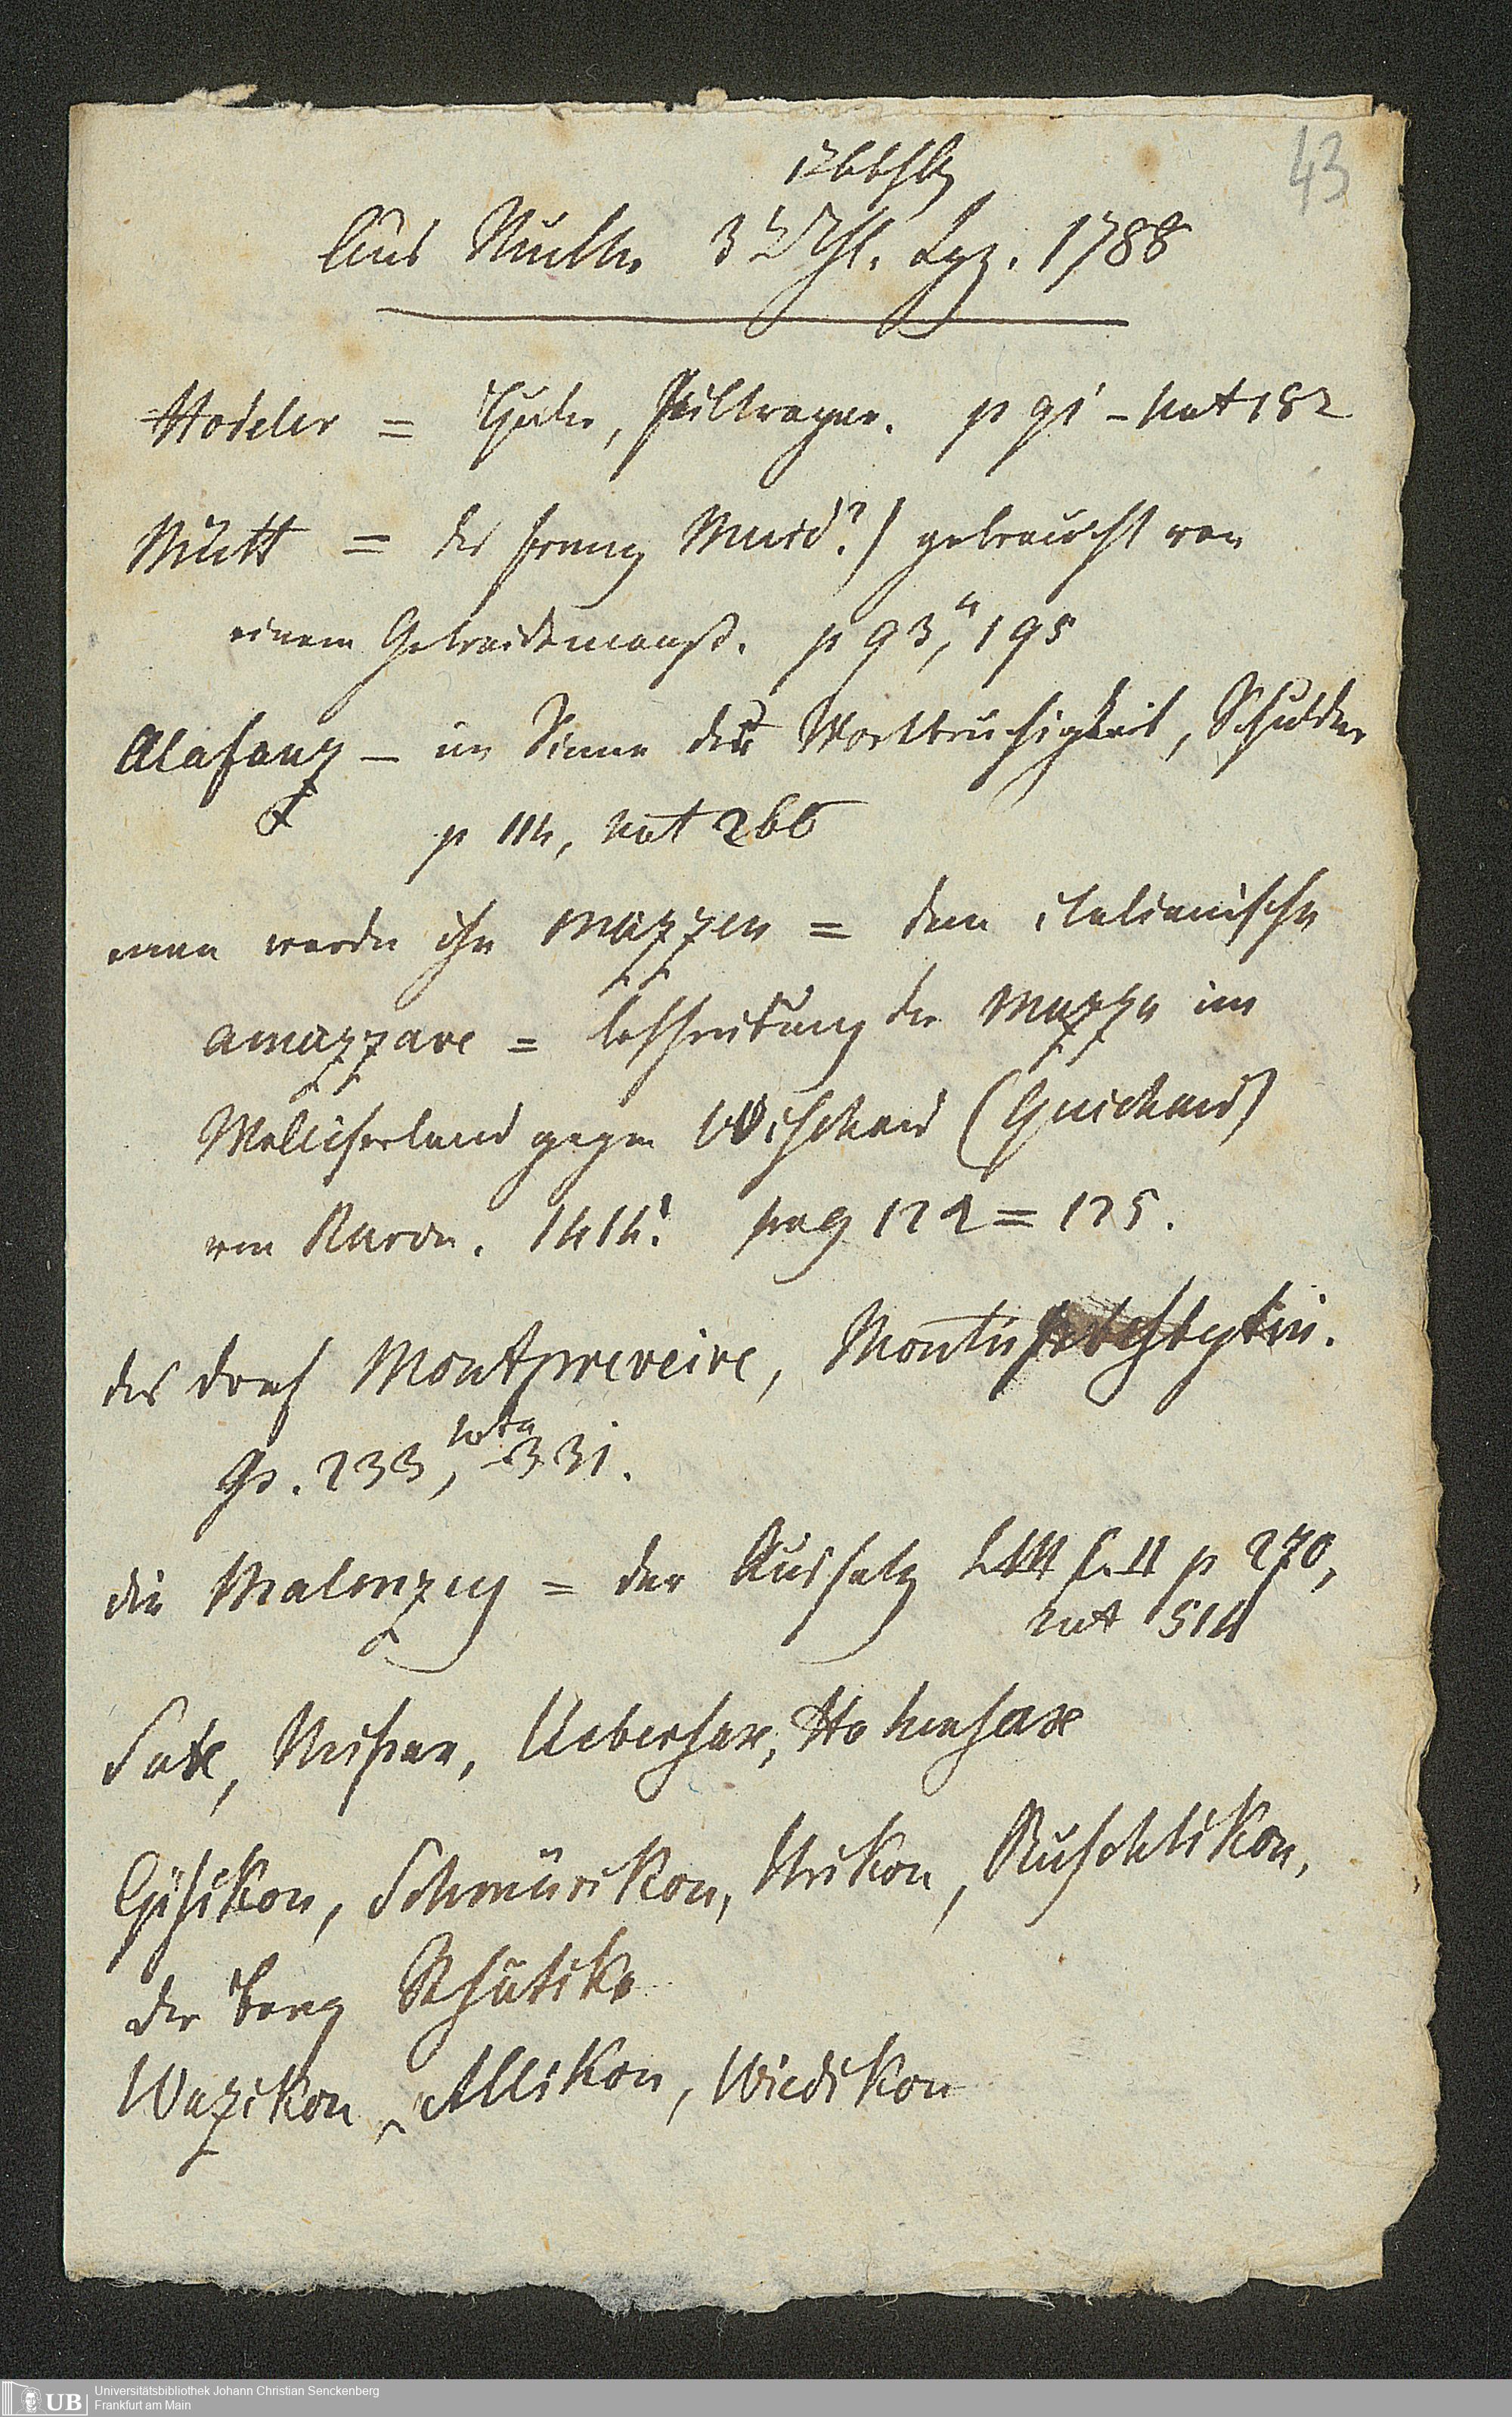 43
Aus Muller 3r Thl. Lpz. 1788
Hodeler = Huter, Feiltrager. p 91 - not 182
Mütt = der franz Muid?) gebraucht von
einem Getraidemaass. p 93, n 195
Alafanz – im Sinne der Wortbruchigkeit, Schulden
p 114, not 266
man werde ihn mazzen = dem italienischen
amazzare = Beschreibung der Mazze im
Walliserland gegen Wischard (Guichard)
von Raron. 1414. pag 124 = 125.
das Dorf Montpreveire, Montis
p. 233, nota 331.
die Malenzey = der Aussatz p 270,
not 514
Sax, Missau, Uebersax, Hohensax
Gisikon, Schmürikon, Urikon, Ruschlikon,
der Berg Rhätiko
Wazikon, Allikon, Wiedikon
Universitätsbibliothek Johann Christian Senckenberg
Frankfurt am Main
UB